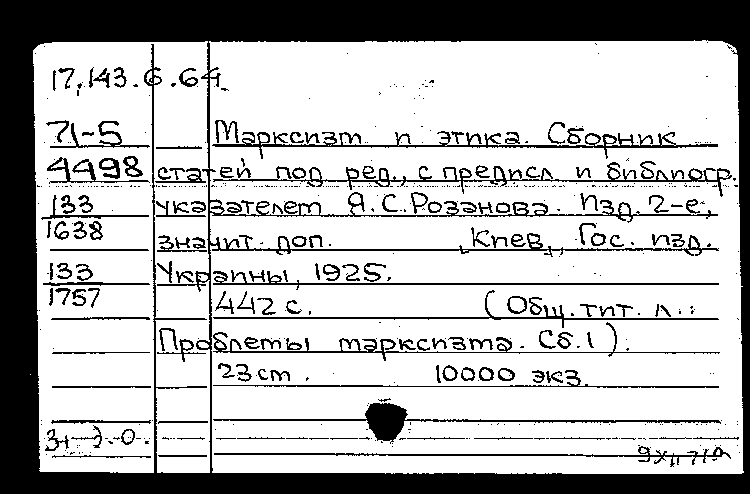 17,143.6.64.
71-5 Марксизм и этика. Сборник
4498 статей под ред., с предисл. и библиогр.
133 указателем Я.С.Розанова. Изд. 2-е,
1638 значит. доп. [Киев], Гос. изд.
133 Украины, 1925.
1757 442 с. (Общ. тит. л.:
Проблемы марксизма. Сб.1).
23 см. 10000 экз.
Зт Э.О.